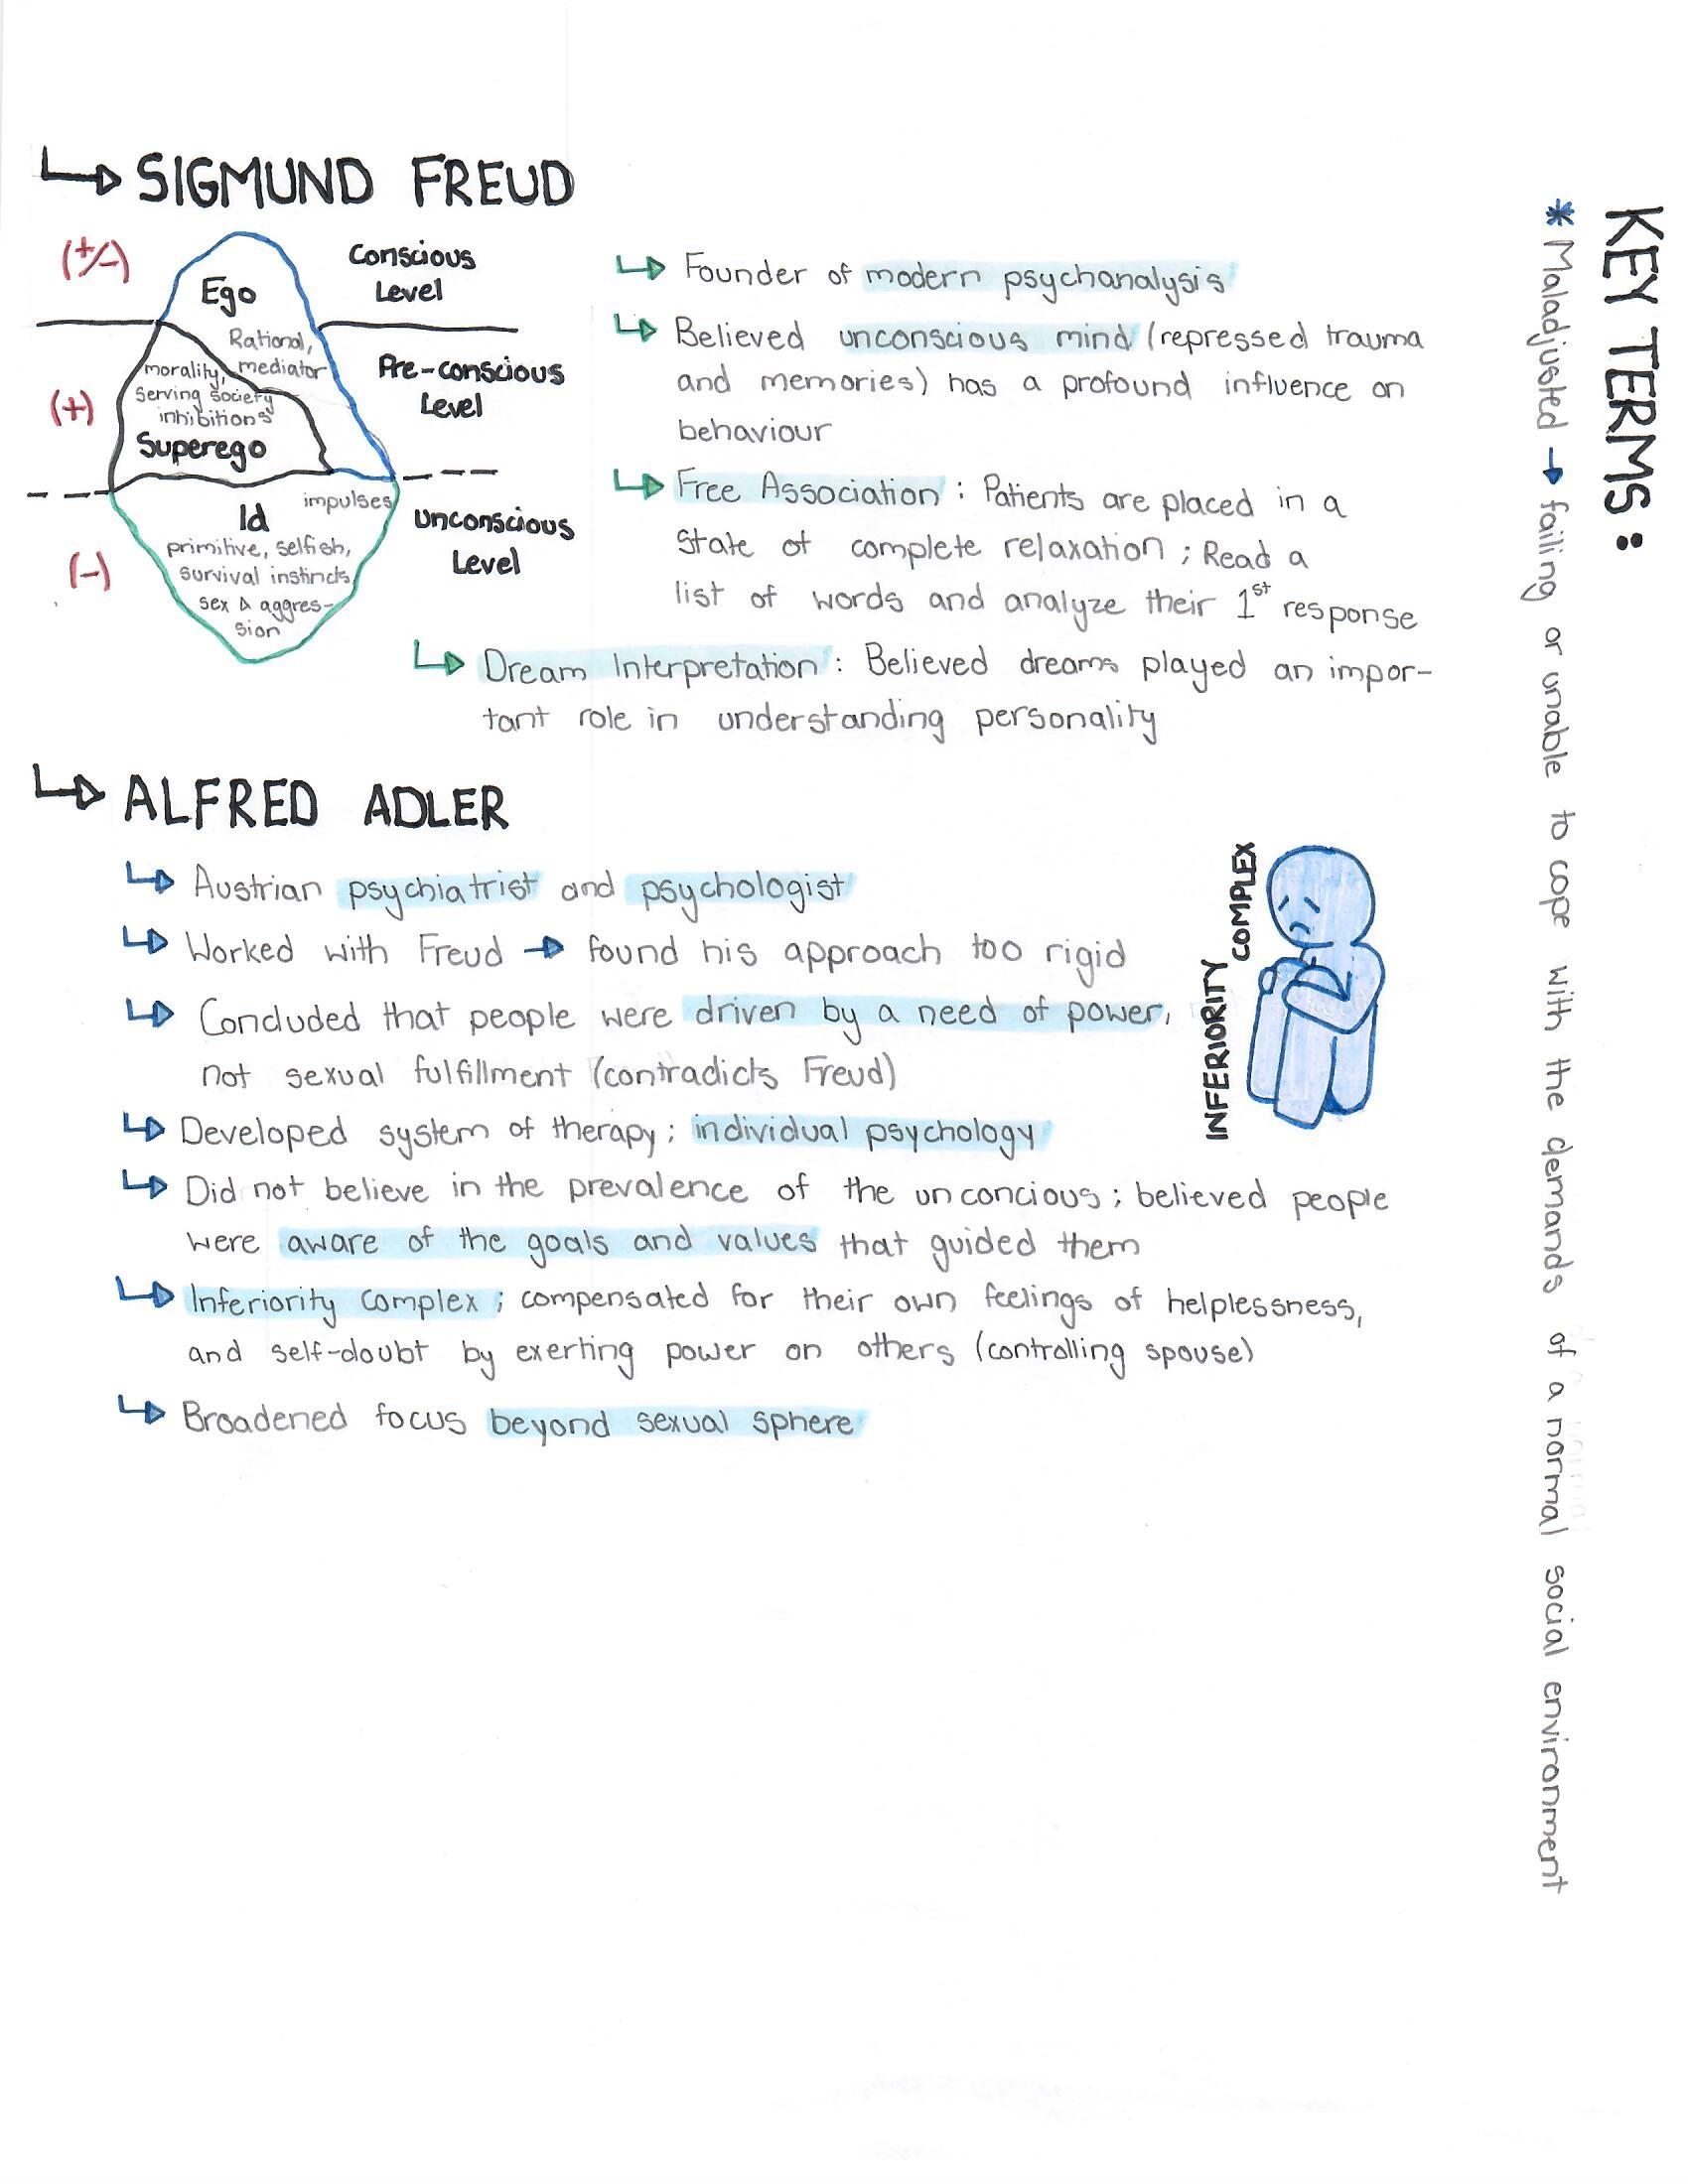 SIGMUND FREUD
(+/-)
Ego
Conscious
Level
Rational,
mediator
(+)
morality,
serving society
inhibitions
Superego
Pre-conscious
Level
(-)
Id
impulses
primitive, selfish,
survival instincts
sex & aggres-
sion
Unconscious
Level
Founder of modern psychanalysis
Believed unconscious mind (repressed trauma
and memories) has a profound influence on
behaviour
Free Association : Patients are placed in a
state of complete relaxation ; Read a
list of words and analyze their 1st response
Dream Interpretation : Believed dreams played an impor-
tant role in understanding personality
ALFRED ADLER
Austrian psychiatrist and psychologist
Worked with Freud → found his approach too rigid
Concluded that people were driven by a need of power,
not sexual fulfillment (contradicts Freud)
Developed system of therapy ; individual psychology
Did not believe in the prevalence of the unconcious ; believed people
were aware of the goals and values that guided them
Inferiority complex ; compensated for their own feelings of helplessness,
and self-doubt by exerting power on others (controlling spouse)
Broadened focus beyond sexual sphere
INFERIORITY
COMPLEX
KEY TERMS :
* Maladjusted → failing or unable to cope with the demands of a normal social environment